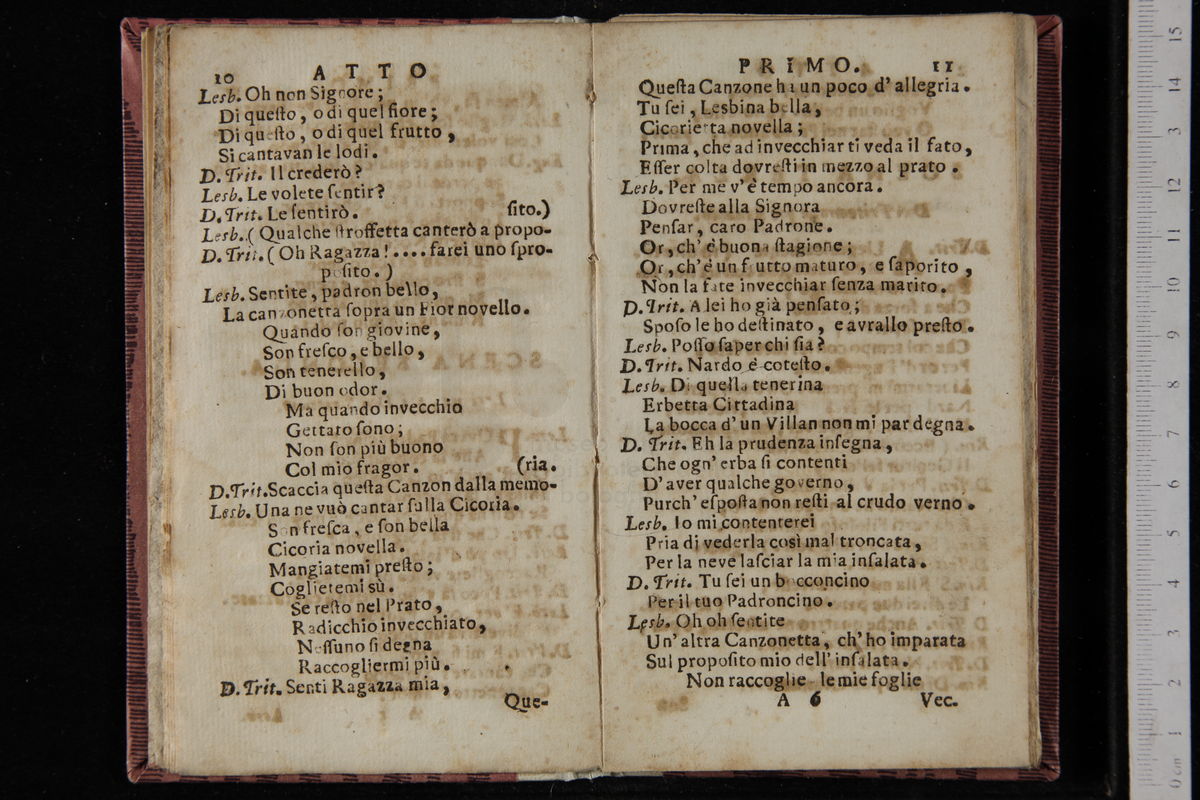 10 ATTO
Lesb. Oh non Signore;
Di queſto, o di quel fiore;
Di queſto, o di quel frutto,
Si cantavan le lodi.
D. Trit. Il crederò?
Lesb. Le volete ſentir?
D. Trit. Le ſentirò. ſito.)
Lesb. (Qualche ſtroffetta canterò a propo-
D. Trit. (Oh Ragazza!.... farei uno ſpro-
poſito.)
Lesb. Sentite, padron bello,
La canzonetta ſopra un Fior novello.
Quando ſon giovine,
Son freſco, e bello,
Son tenerello,
Di buon odor.
Ma quando invecchio
Gettato ſono;
Non ſon più buono
Col mio fragor. (ria.
D. Trit. Scaccia queſta Canzon dalla memo-
Lesb. Una ne vuò cantar ſulla Cicoria.
Son freſca, e ſon bella
Cicoria novella.
Mangiatemi preſto;
Coglietemi sù.
Se reſto nel Prato,
Radicchio invecchiato,
Neſſuno ſi degna
Raccogliermi più.
D. Trit. Senti Ragazza mia,
Que-
PRIMO. 11
Queſta Canzone ha un poco d'allegria.
Tu ſei, Lesbina bella,
Cicorietta novella;
Prima, che ad invecchiar ti veda il fato,
Eſſer colta dovreſti in mezzo al prato.
Lesb. Per me v'è tempo ancora.
Dovreſte alla Signora
Penſar, caro Padrone.
Or, ch'é buona ſtagione;
Or, ch'é un frutto maturo, e ſaporito,
Non la fate invecchiar ſenza marito.
D. Trit. A lei ho già penſato;
Spoſo le ho deſtinato, e avrallo preſto.
Lesb. Poſſo ſaper chi ſia?
D. Trit. Nardo é coteſto.
Lesb. Di quella tenerina
Erbetta Cittadina
La bocca d'un Villan non mi par degna.
D. Trit. Eh la prudenza inſegna,
Che ogn'erba ſi contenti
D'aver qualche governo,
Purch'eſpoſta non reſti al crudo verno.
Lesb. Io mi contenterei
Pria di vederla così mal troncata,
Per la neve laſciar la mia inſalata.
D. Trit. Tu ſei un bocconcino
Per il tuo Padroncino.
Lesb. Oh oh ſentite
Un'altra Canzonetta, ch'ho imparata
Sul propoſito mio dell'inſalata.
Non raccoglie le mie foglie
A 6 Vec.
15
14
13
12
11
10
9
8
7
6
5
4
3
2
1
0 cm